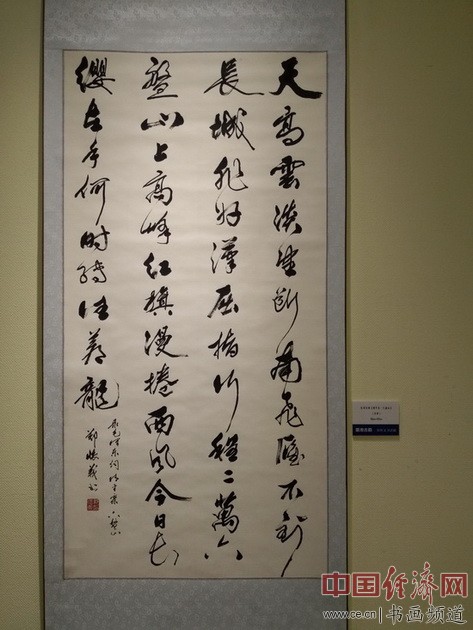 天高雲淡望斷南飛雁不到
長城非好漢屈指行程二萬六
盤山上高峰紅旗漫捲西風今日长
纓在手何時縛住蒼龍
录毛泽东词清平樂六盤山
中国经济网
www.ce.cn|书画频道